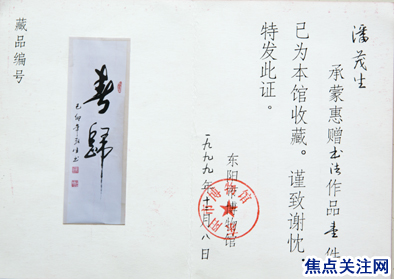 潘茂生
承蒙惠赠书法作品壹件
已为本馆收藏。谨致谢忱.
特发此证。
东阳市博物馆
一九九九年十二月八日
春歸
己卯年
藏品编号
焦点关注网